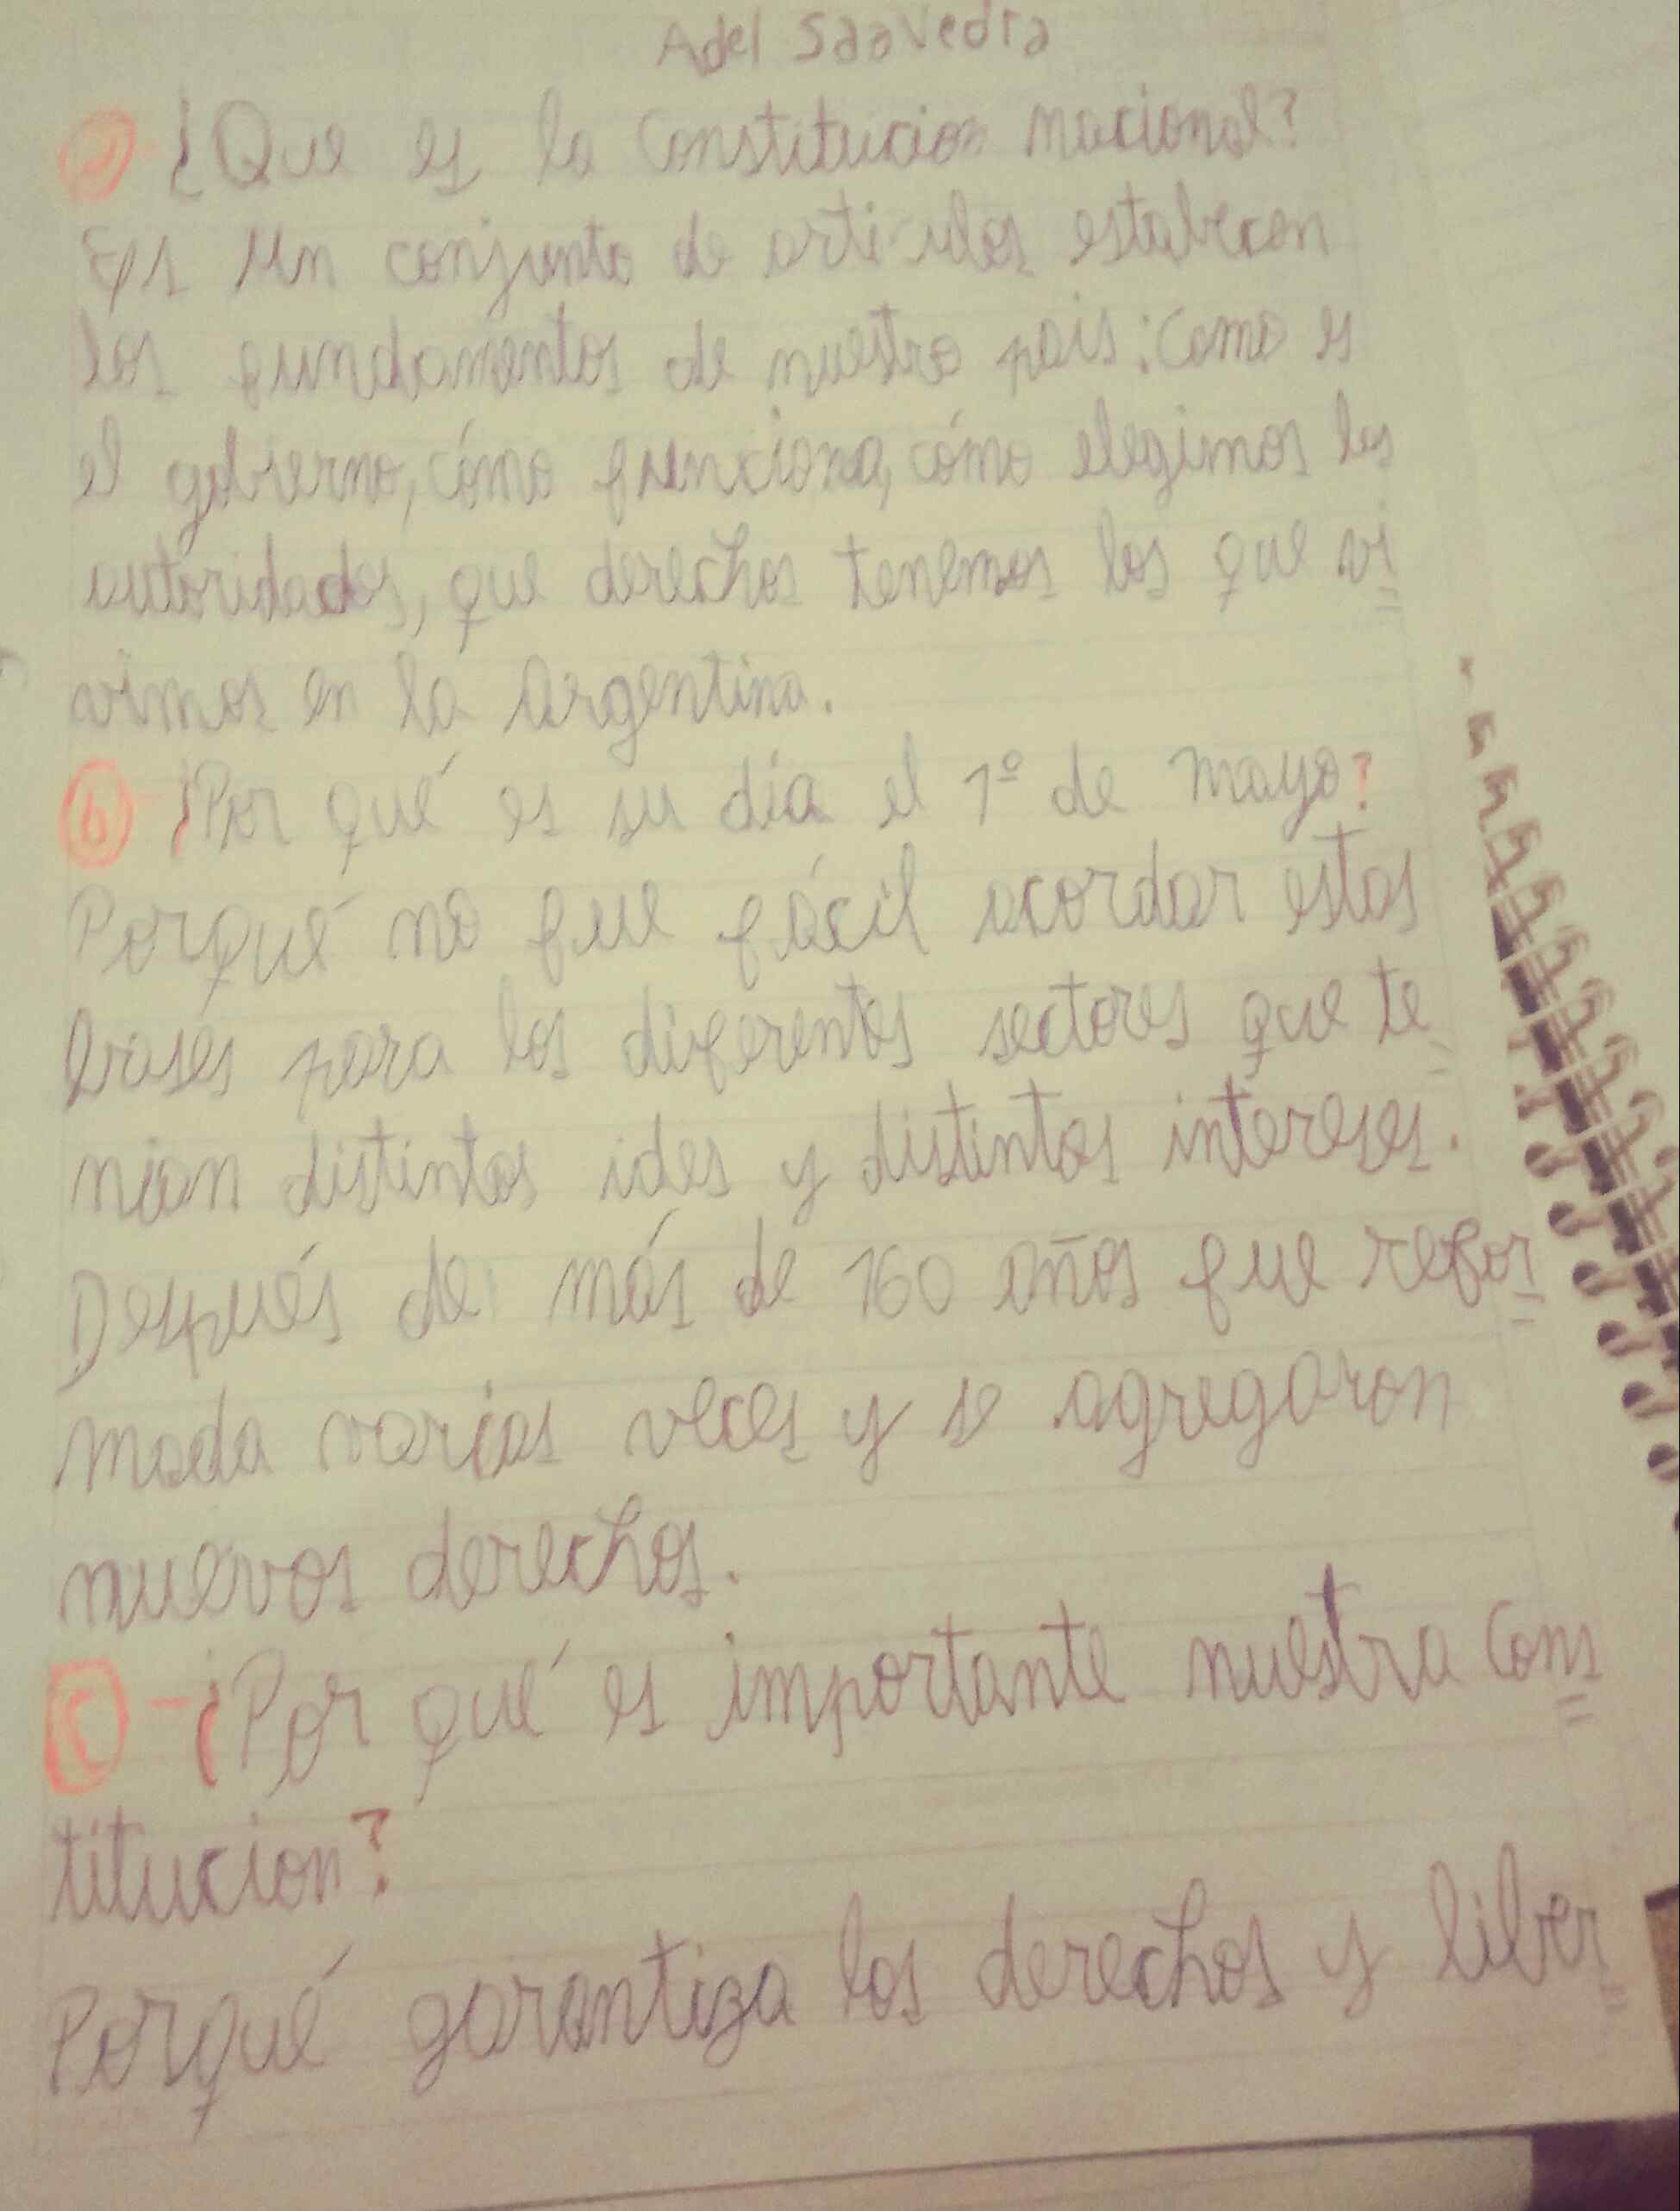 Adel Saavedra
a - ¿Que es la Constitucion nacional?
Es un conjunto de articulos estabecen
los fundamentos de nuestro pais: Como es
el gobierno, cómo funciona, cómo elegimos las
autoridades, que derechos tenemos los que vi=
vimos en la Argentina.
b - ¿Por qué es su día el 1º de mayo?
Porqué no fue fácil acordar estas
bases para los diferentes sectores que te=
nian distintas ides y distintos intereses.
Después de más de 160 años fue refor=
mada varias veces y se agregaron
nuevos derechos.
C - ¿Por qué es importante nuestra Cons=
titucion?
Porqué garantiza los derechos y liber=